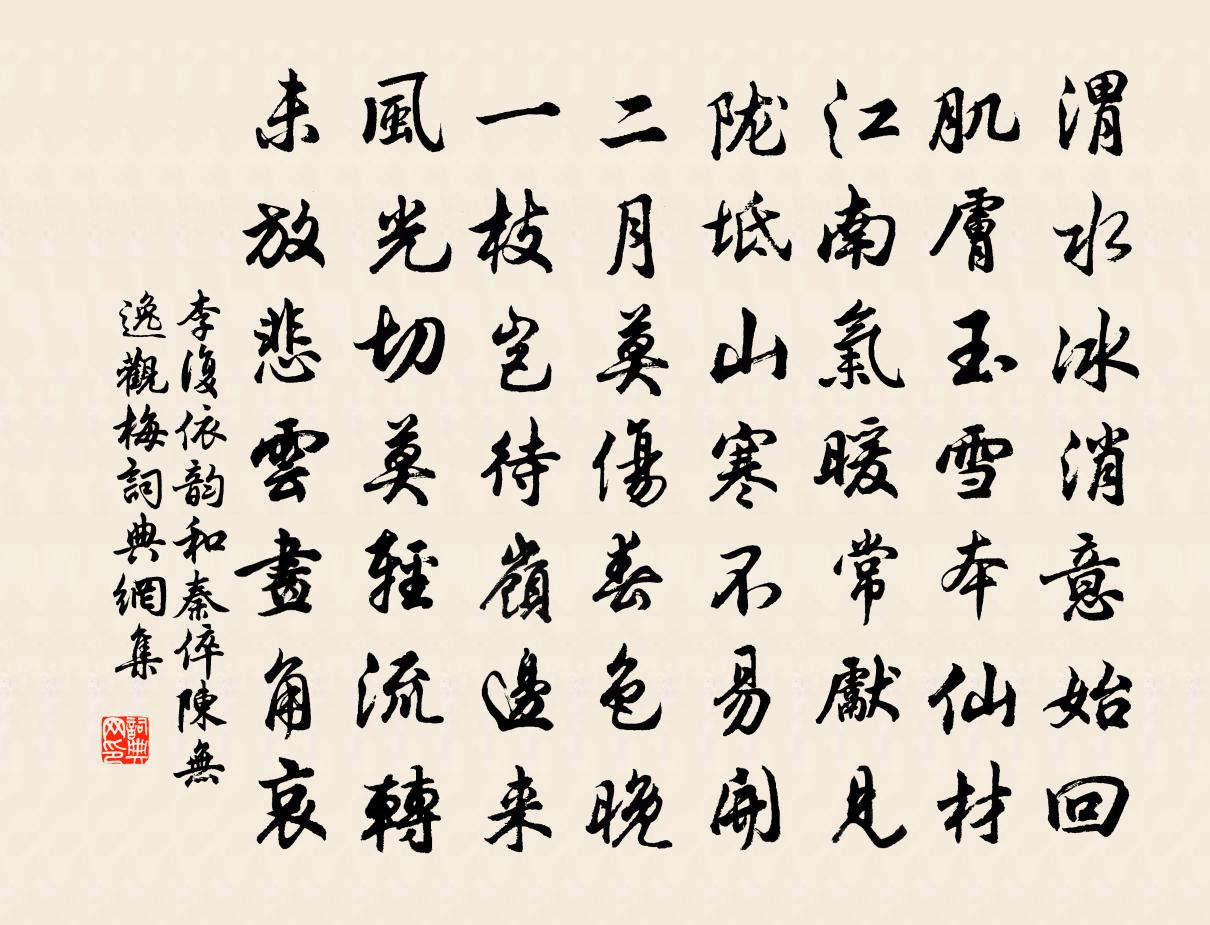 渭水冰消意始回
肌膚玉雪本仙材
江南氣暖常獻見
陇坻山寒不易開
二月莫傷春色晚
一枝豈待嶺邊来
風光切莫輕流轉
未放悲雲畫角哀
李復依韵和秦倅陳無
逸觀梅詞典網集
詞典
网印